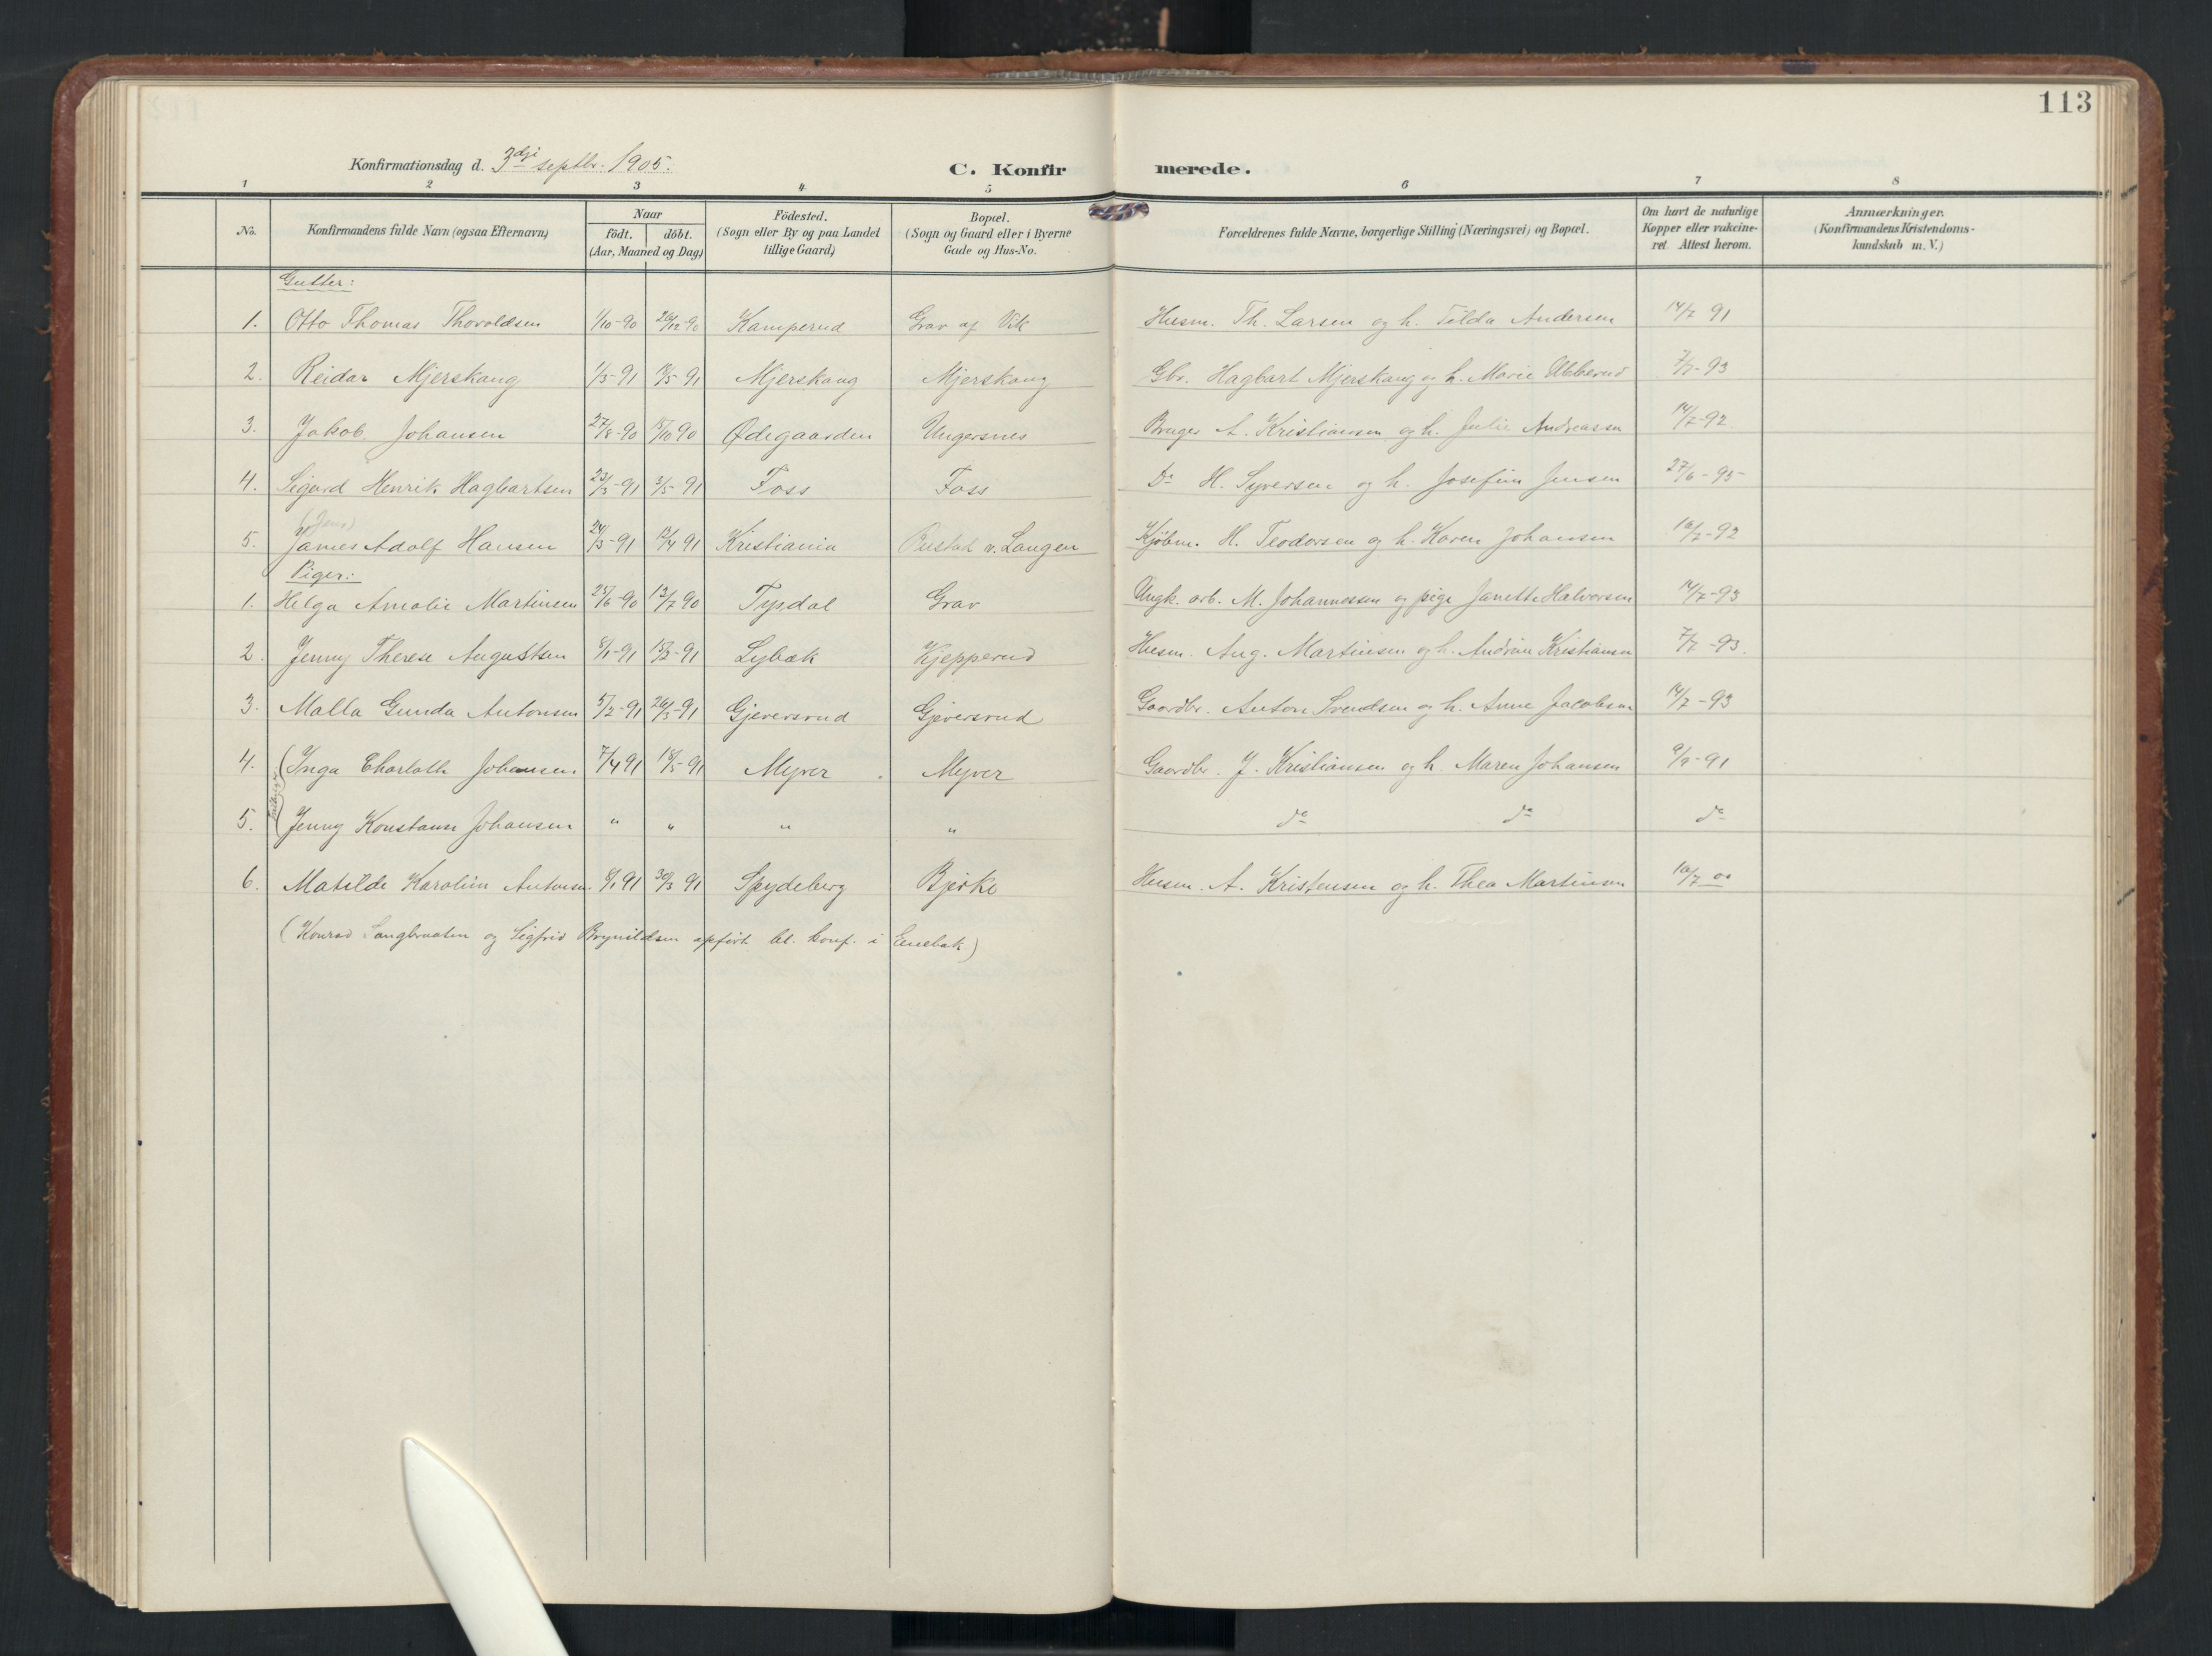 113
Konfirmationsdag d. 3dje septbr. 1905.
C. Konfirmerede.
1 2 3 4 5 6 7 8
No.
Konfirmandens fulde Navn (ogsaa Efternavn)
Naar
födt. döbt.
(Aar, Maaned og Dag)
Födested.
(Sogn eller By og paa Landet
tillige Gaard)
Bopæl.
(Sogn og Gaard eller i Byerne
Gade og Hus-No.
Forældrenes fulde Navne, borgerlige Stilling (Næringsvei) og Bopæl.
Om havt de naturlige
Kopper eller vakcine-
ret. Attest herom.
Anmærkninger.
(Konfirmandens Kristendoms-
kundskab m. V.)
Gutter:
1. Otto Thomas Thoroldsen 1/10-90 26/12-90 Kamperud Grav af Vik Husm. Th. Larsen og h. Tilda Andersen 14/7 91
2. Reidar Mjerskaug 1/3-91 18/5-91 Mjerskaug Mjerskaug Gbr. Hagbart Mjerskaug og h. Marie Ubberud 7/7-93
3. Jakob Johansen 27/8-90 15/10 90 Ødegaarden Ungersnes Bruger A. Kristiansen og h. Julie Andreassen 14/7-92
4. Sigurd Henrik Hagbartsen 23/3-91 3/5-91 Foss Foss Do H. Syversen og h. Josefine Jensen 27/6-95
(Jens)
5. James Adolf Hansen 24/3-91 12/4 91 Kristiania Pustad v. Langen Kjøbm. H. Teodorsen og h. Karen Johansen 10/7-92
Piger:
1. Helga Amalie Martinsen 25/6-90 13/7 90 Tysdal Grav Ungk. arb. M. Johannessen og pige Janette Halvorsen 14/7-93
2. Jenny Therese Augustsen 8/1-91 15/2-91 Lybæk Kjepperud Husm. Aug. Martinsen og h. Andrine Kristiansen 7/7-93.
3. Malla Gunda Antonsen 5/2-91 26/3-91 Gjeversrud Gjeversrud Gaardbr. Anton Svendsen og h. Anne Jacobsen 14/7-93
4. (Inga Charlotte Johansen 7/4 91 18/5-91 Myrer Myrer Gaardbr. J. Kristiansen og h. Maren Johansen 9/9-91
5. (Jenny Konstanse Johansen " " " " do do do
6. Matilde Karoline Antonsen 8/1 91 30/3 91 Spydeberg Bjerke Husm. A. Kristensen og h. Thea Martinsen 10/7 00
(Konrad Langbraaten og Sigfrid Brynildsen opført bl. konf. i Enebak)